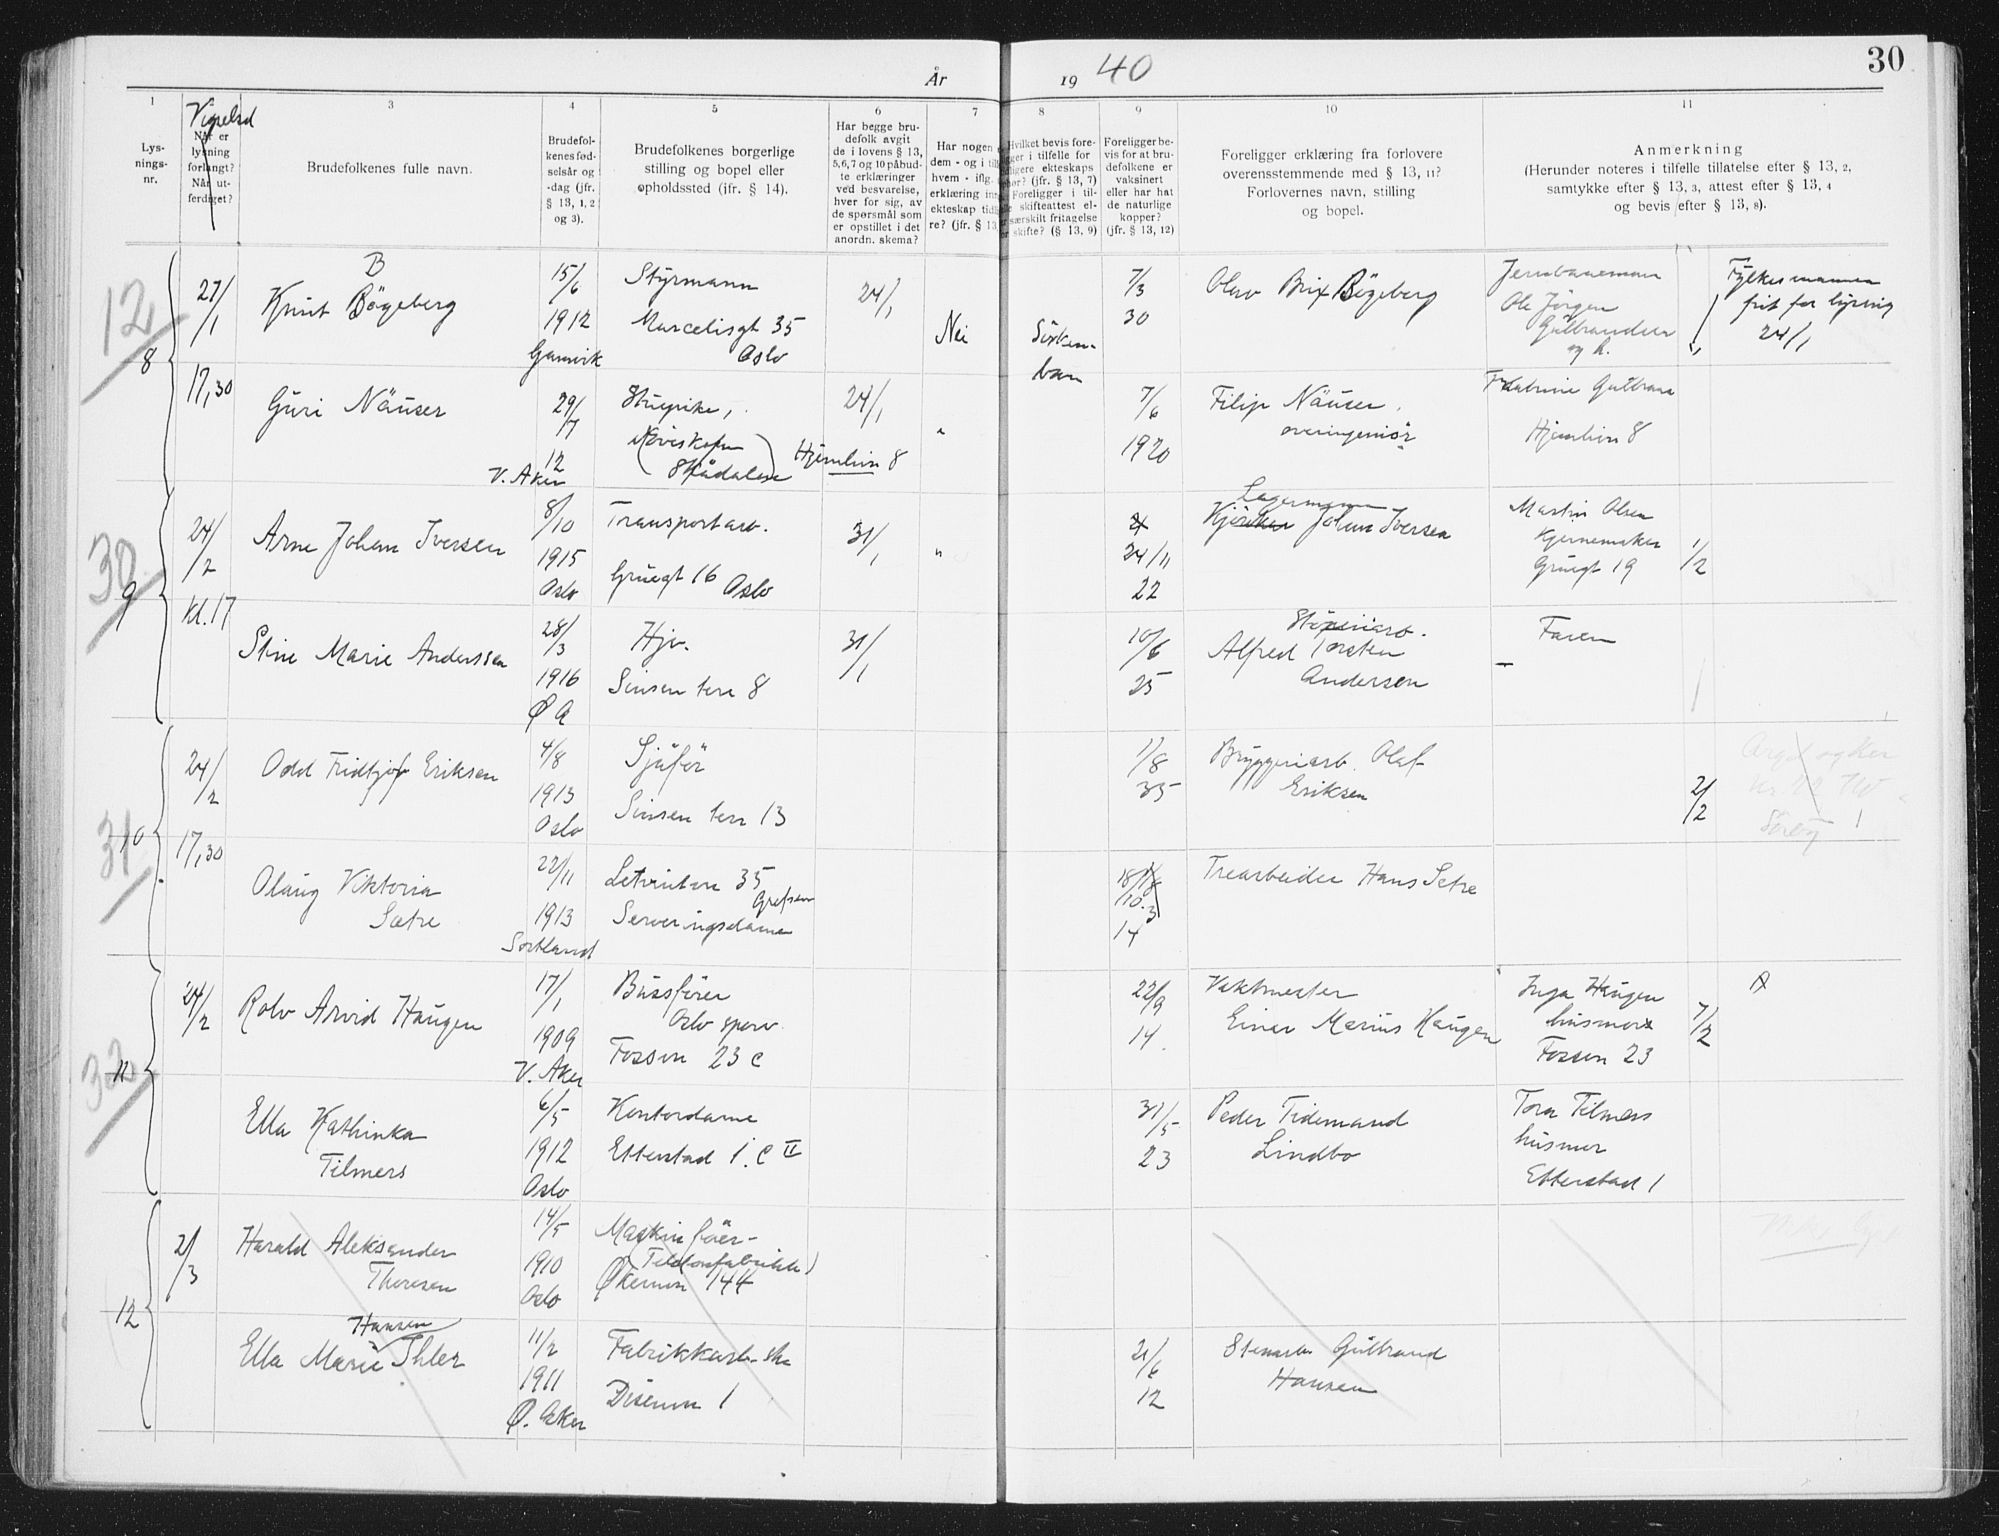 År 1940
30
1
3
4
5
6
7
8
9
10
11
Vigselsd
Lys-
nings-
nr.
Når er
lysning
forlangt?
Når ut-
ferdiget?
Brudefolkenes fulle navn.
Brudefol-
kenes fød-
selsår og
-dag (jfr.
§ 13, 1, 2
og 3).
Brudefolkenes borgerlige
stilling og bopel eller
opholdssted (jfr. § 14).
Har begge bru-
defolk avgit
de i lovens § 13,
5,6,7 og 10 påbud-
te erklæringer
ved besvarelse,
hver for sig, av
de spørsmål som
er opstillet i det
anordn. skema?
Har nogen
dem - og i
hvem - iflg.
erklæring
ekteskap
re? (jfr. § 13
Hvilket bevis fore-
i tilfelle for
ekteskaps
(jfr. § 13, 7)
Foreligger i til-
skifteattest el-
særskilt fritagelse
skifte? (§ 13, 9)
Foreligger be-
vis for at bru-
defolkene er
vaksinert
eller har hat
de naturlige
kopper?
(jfr. § 13, 12)
Foreligger erklæring fra forlovere
overensstemmende med § 13, 11?
Forlovernes navn, stilling
og bopel.
Anmerkning
(Herunder noteres i tilfelle tillatelse efter § 13, 2,
samtykke efter § 13, 3, attest efter § 13, 4
og bevis efter § 13, 8).
12
8
27/1
17,30
B
Knut Bögeberg
15/6
1912
Gamvik
Styrmann
Marcelisgt 35
Oslo
24/1
Nei
7/3
30
Olav Brix Bögeberg
Jernbanemann
Ole Jörgen
Gulbrandsen
og h.
Fylkesmannen
frit for lysning
24/1
Guri Näuser
29/7
12
V. Aker
Hjemlien 8
24/1
"
7/6
1920
Filip Näuser,
overingeniör
Hjemlien 8
30
9
24/2
kl. 17
Arne Johan Iversen
8/10
1915
Oslo
Transportarb.
Gruegt 16 Oslo
31/1
"
24/11
22
Lagermann
Johan Iversen
Martin Olsen
Kjernemaker
Gruegt 19
1/2
Stine Marie Anderssen
28/3
1916
Ø A
Hjv.
Sinsen terr 8
31/1
10/6
25
Alfred Torsten
Andersen
Faren
31
10
24/2
17,30
Odd Fridtjof Eriksen
4/8
1913
Oslo
Sjåför
Sinsen terr 13
1/8
35
Bryggeriarb. Olaf
Eriksen
2/2
Olaug Viktoria
Sætre
22/11
1913
Sortland
35
Grefsen
Serveringsdame
18/10
14
Trearbeider Hans Setre
32
11
24/2
Rolv Arvid Haugen
17/1
1909
V. Aker
Bussfører
Oslo sporv.
Fossvn 23 c
22/9
14.
Vaktmester
Einar Marius Haugen
Inga Haugen
husmor
Fossvn 23
7/2
Ella Kathinka
Tilmers
6/5
1912
Oslo
Kontordame
Etterstad 1. C II
31/5
23
Peder Tidemand
Lindbo
Tora Tilmers
husmor
Etterstad 1
12
2/3
Harald Aleksander
Thoresen
14/5
1910
Oslo
Maskinfører-
Telefonfabrikk)
Økernvn 144
Hansen
Ella Marie Ihler
11/2
1911
Ø. Aker
Fabrikkarb.ske
Disenvn 1
21/6
12
Stenarb. Gulbrand
Hansen